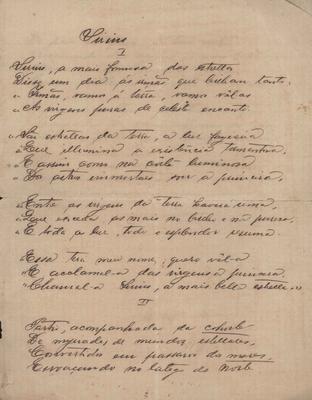 Sirius
I
Sirius, a mais formosa das estrellas
Disse um dia ás irmãs que brilham tanto:
« Irmãs, vamos á terra, vamos vêl-as
« As virgens puras de celeste encanto.

« São estrellas da terra, a luz
« Que illumina a existencia
« E assim como na côrte luminosa
« Dos astros immortaes sou a primeira,

« Entre as virgens da terra haverá uma,
« Que exceda as mais no brilho e na pureza,
« E toda a luz, todo o esplendor resuma.

Essa terá meu nome; quero vêl-a
« E acclamal-a das virgens a primeira
« Chamal-a Sirius, a mais bella estrella. »
II
Partiu, acompanhada da cohorte
De myriadas de mundos estellares,
Convertidos em passaros dos mares,
Esvoaçando no latego do Norte